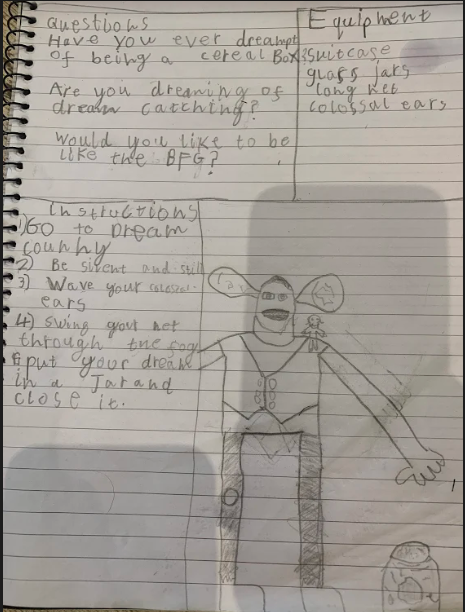 Questions
Have you ever dreampt
of being a cereal Box?
Are you dreaming of
dream catching?
Would you like to be
like the BFG?
Equipment
suitcase
glass jars
long net
colossal ears
instructions
1) GO to Dream
country
2) Be silent and still
3) Wave your colossal
ears
4) swing your net
through the fog
put your dream
in a Jar and
close it.